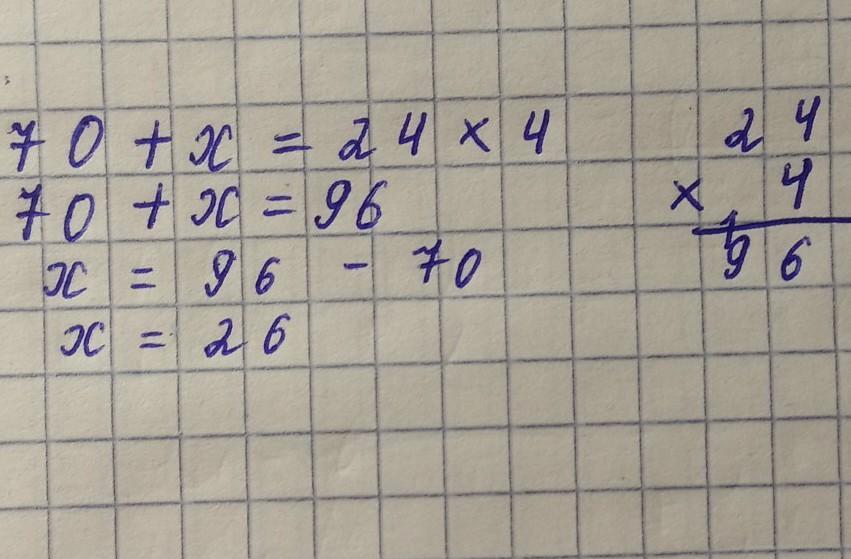 70 + x = 24 × 4
70 + x = 96
x = 96 - 70
x = 26
24
× 4
1
96